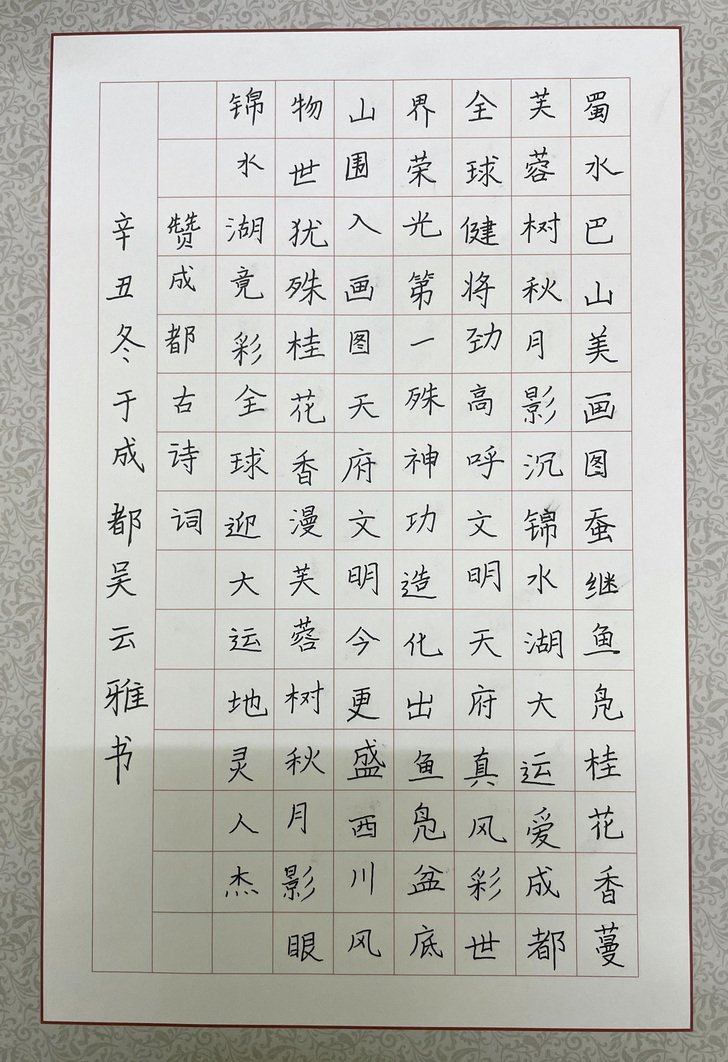 蜀水巴山美画图蚕继鱼凫桂花香蔓
芙蓉树秋月影沉锦水湖大运爱成都
全球健将劲高呼文明天府真风彩世
界荣光第一殊神功造化出鱼凫盆底
山围入画图天府文明今更盛西川风
物世犹殊桂花香漫芙蓉树秋月影眼
锦水湖竟彩全球迎大运地灵人杰
赞成都古诗词
辛丑冬于成都吴云雅书